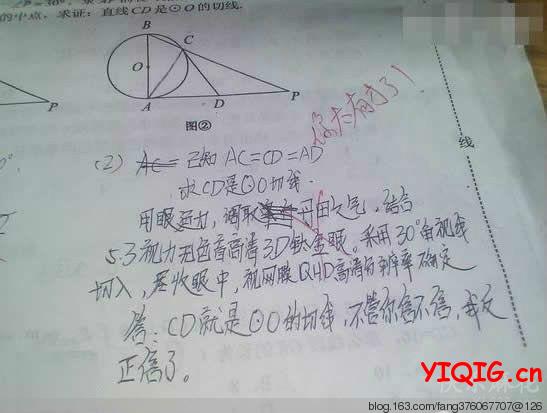 的中点,求证:直线CD是⊙O的切线.
B
C
O
A
D
P
P
图②
你太有才了!
(2) 已知 AC=CD=AD
求CD是⊙O切线.
用眼运力,调取丹田之气,结合
5.3视力无色盲高清3D钛金眼。采用30°角视线
切入,聚收眼中,视网膜QHD高清分辨率确定
答:CD就是⊙O的切线,不管你信不信,我反
正信了。
线
YIQIG.cn
blog.163.com/fang376067707@126